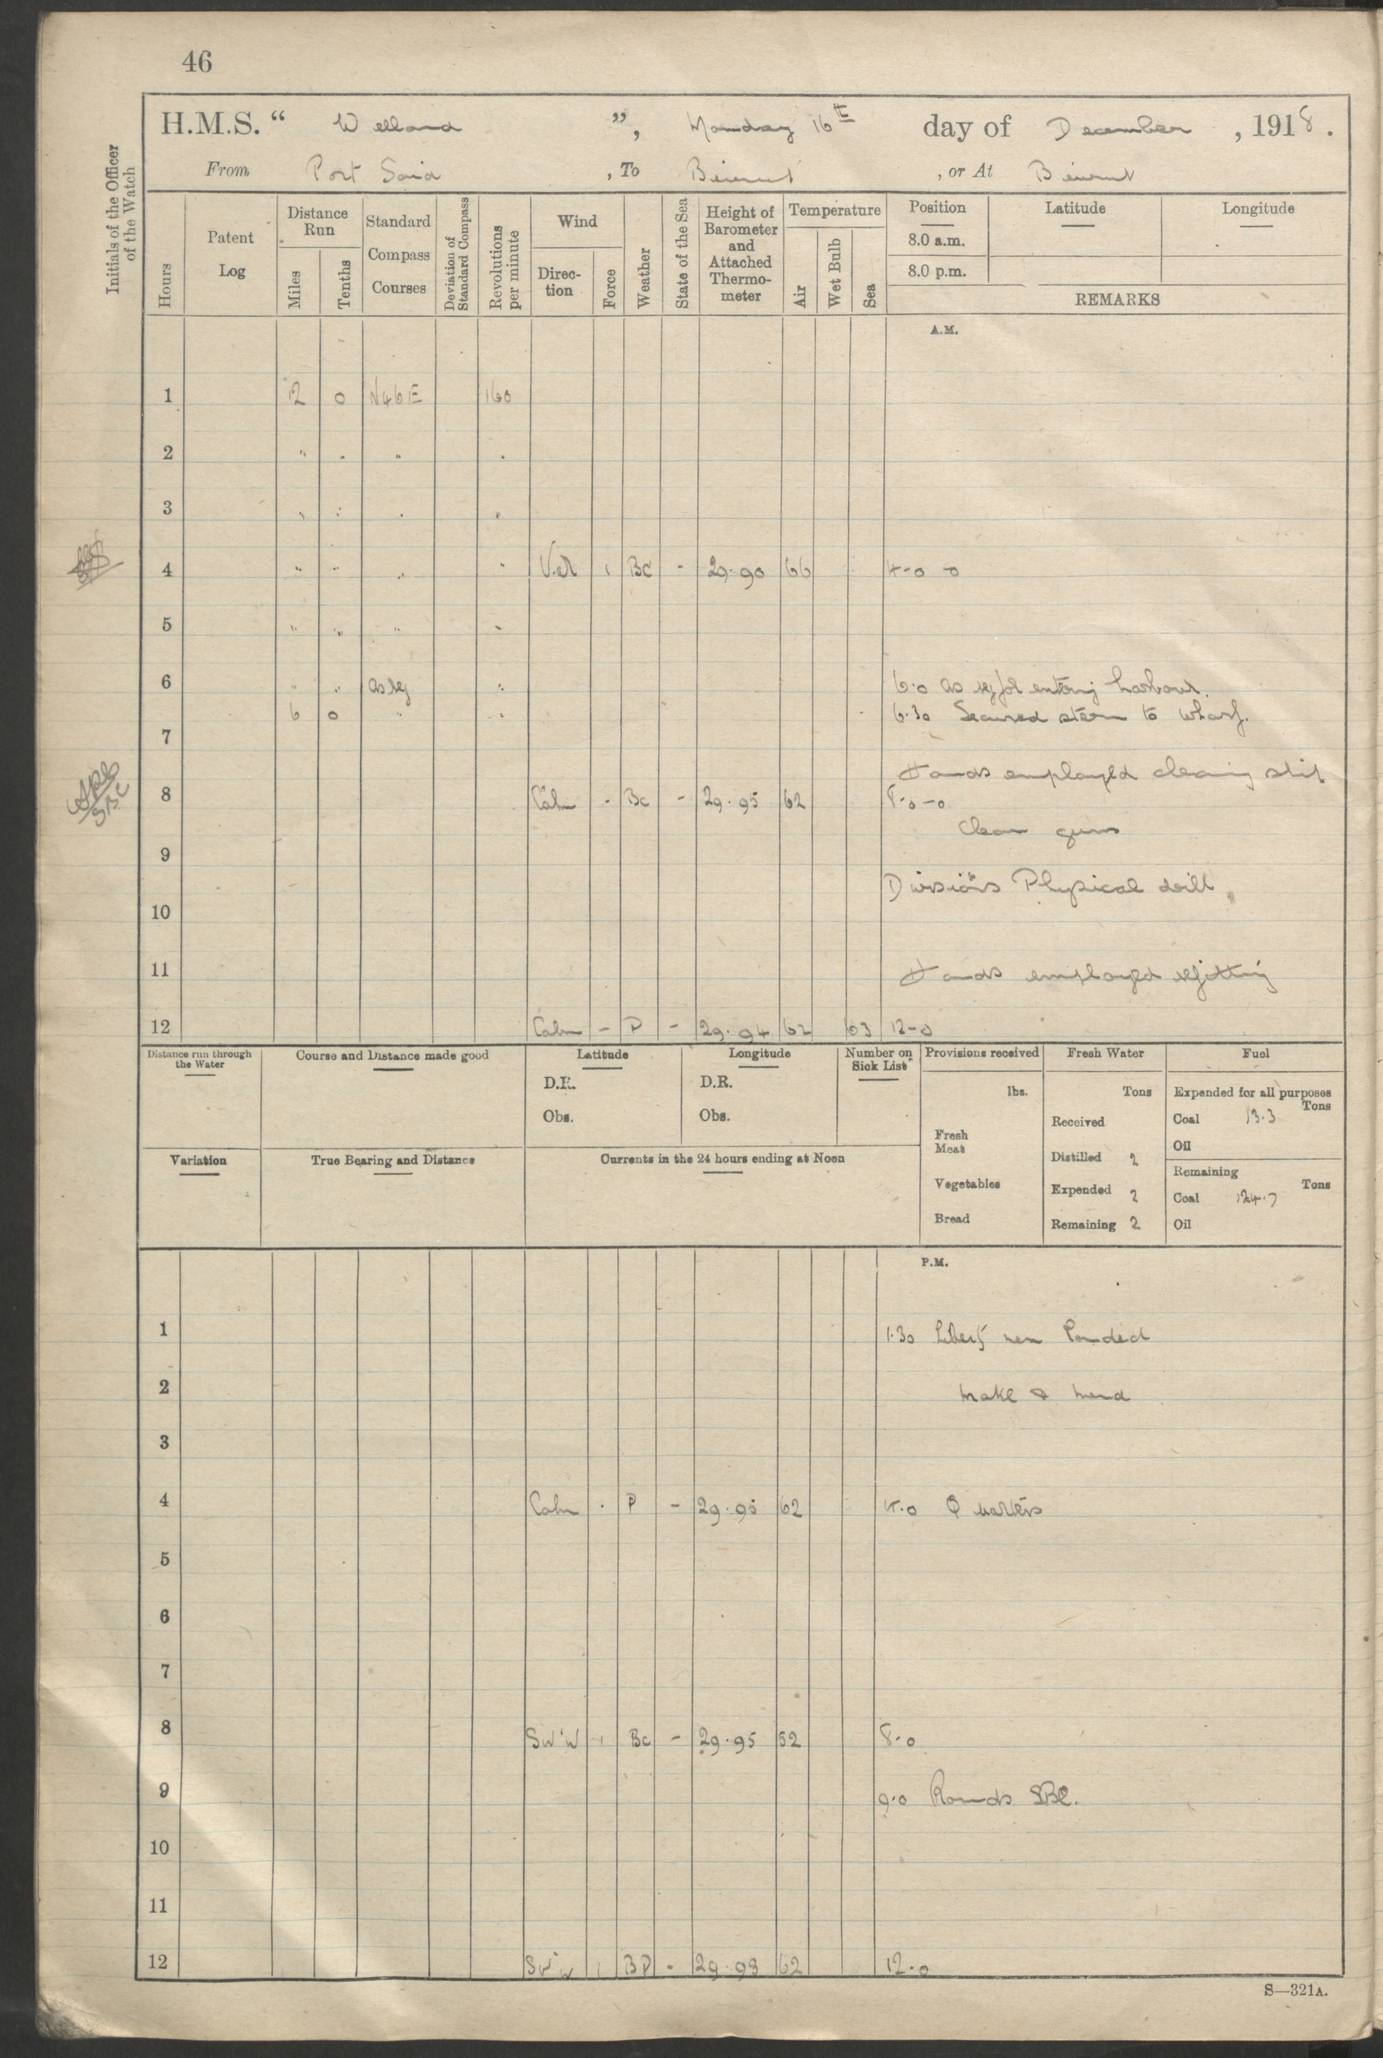 46
H.M.S. " Welland ", Monday 16th day of December, 1918.
From Port Said, To Beirut, or At Beirut
Initials of the Officer of the Watch
Hours
Patent Log
Distance Run
Miles
Tenths
Standard Compass Courses
Deviation of Standard Compass
Revolutions per minute
Wind
Direc-tion
Force
Weather
State of the Sea
Height of Barometer and Attached Thermo-meter
Temperature
Air
Wet Bulb
Sea
Position
Latitude
Longitude
8.0 a.m.
8.0 p.m.
REMARKS
A.M.
1 12 0 N46E 160
2 " " " "
3 " " " "
4 " " " " 1 BC - 29.90 66 4-0 -0
5 " " " "
6 " " " 6.0 as req for entering harbour.
6 0 " " 6.30 Secured stern to wharf.
7
Hands employed cleaning ship
8 Calm - Bc - 29.95 62 8-0-0
SBC
Clean guns
9
Divisions Physical drill
10
11 Hands employed refitting
12 Calm - P - 29.94 62 63 12-0
Distance run through the Water
Course and Distance made good
Latitude
D.R.
Obs.
Longitude
D.R.
Obs.
Number on Sick List
Provisions received
lbs.
Fresh Meat
Vegetables
Bread
Fresh Water
Tons
Received
Distilled 2
Expended 2
Remaining 2
Fuel
Expended for all purposes
Tons
Coal 13.3
Oil
Remaining
Tons
Coal 124.7
Oil
Variation
True Bearing and Distance
Currents in the 24 hours ending at Noon
P.M.
1 1.30 Liberty men landed
2 make & mend
3
4 Calm - P - 29.95 62 4.0 Quarters
5
6
7
8 SW'W 1 Bc - 29.95 52 8-0
9 9.0 Rounds SBC.
10
11
12 SW'W 1 BP - 29.93 62 12-0
S—321A.